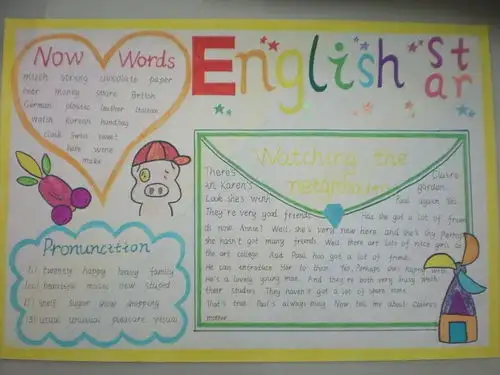 English Star
Now Words
much string chocolate paper
over money spare British
German plastic leather
watch Korean handbag
clock Swiss sweet
hate wine
make
Watching the
neighbours
There's Claire
in Karen's garden.
Look she's with Paul again
They're very good friends Has she got a lot of friends
Annie? Well, she's very new here and she's shy Perhaps
she hasn't got many friends Well there are lots of nice girls in
the art college And Paul has got a lot of friends.
He can introduce her to them Yes, Perhaps she's happy with
He's a lovely young man. And they're both very busy with
their studies They haven't got a lot of spare time
That's true Paul's always busy Now tell me about Claire's
mother
Pronunciation
twenty happy heavy family
beautiful music new student
shelf sugar show shopping
usual unusual pleasure visual